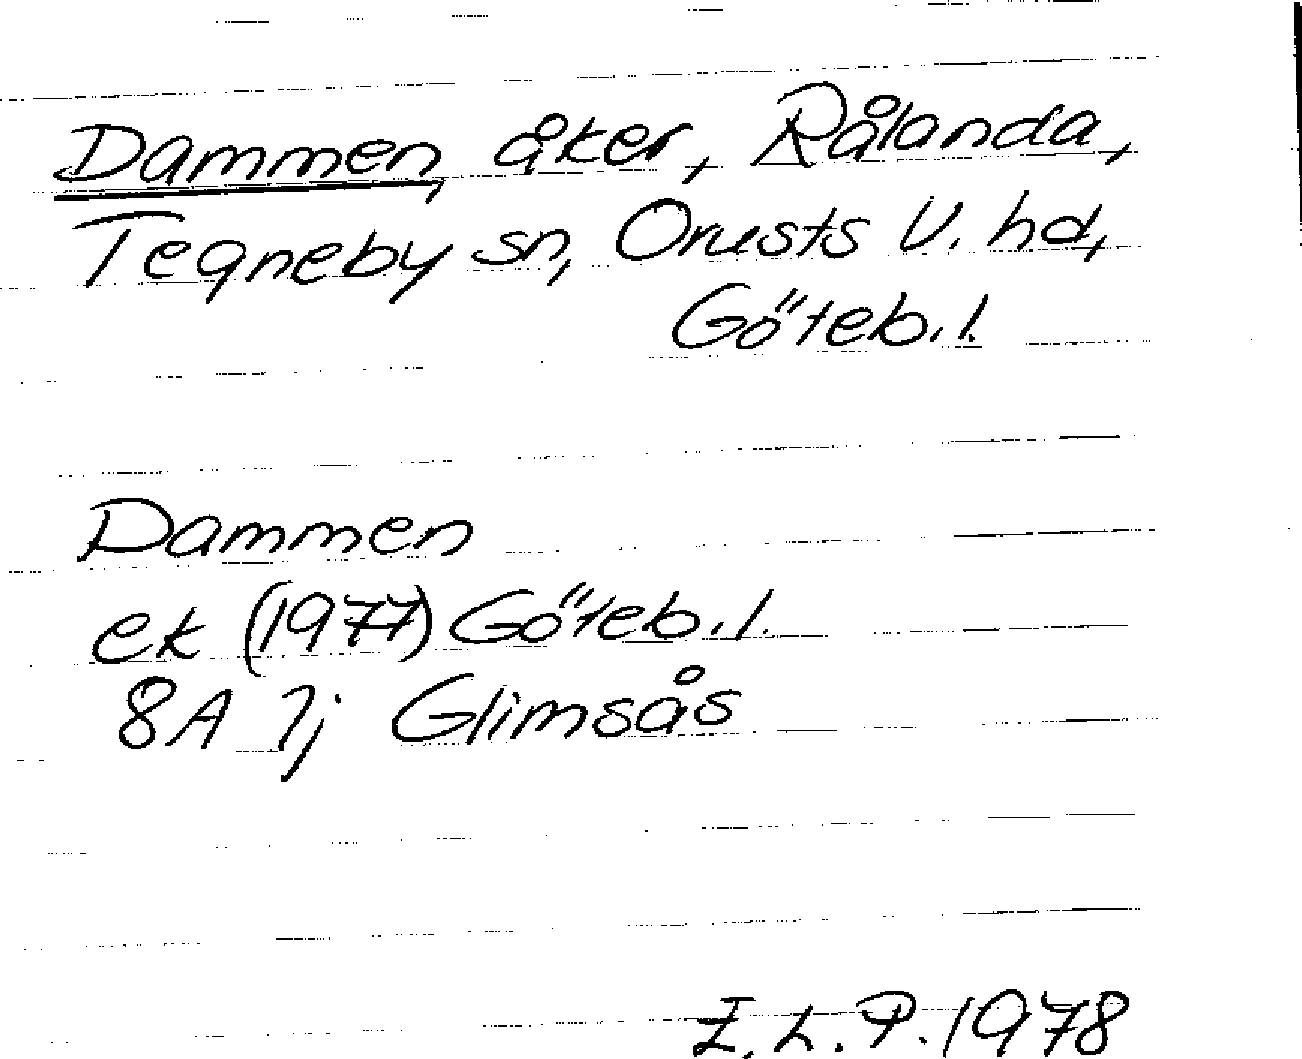 Dammen, åker, Rålanda,
Tegneby sn, Orusts V. hd,
Göteb.l.
Dammen
ek (1977) Göteb.l.
8A 7j Glimsås
I.L.P. 1978